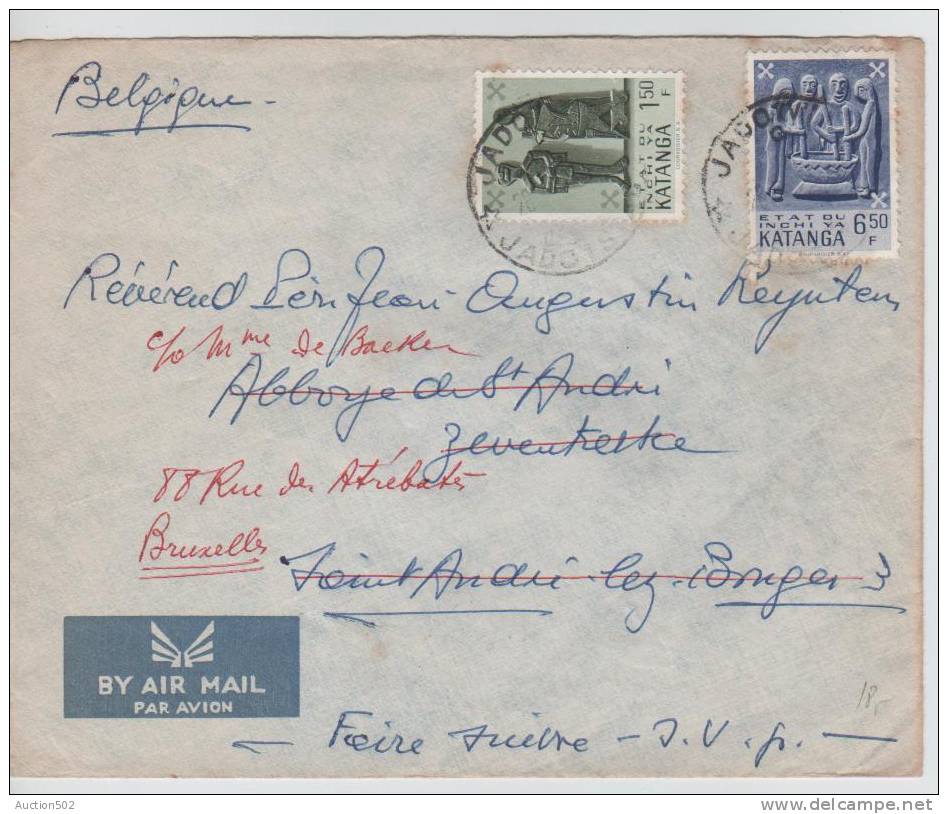 Belgique -
JADOTV
JADOTV
1.50 F
ETAT DU
INCHI YA
KATANGA
COURVOISIER S.A.
JADOTV
ETAT DU
INCHI YA
KATANGA
6.50 F
Révérend Père Jean Augustin Reyntens
c/o Mme de Backer
Abbaye de St André
Zevenkerke
88 Rue des Atrébates
Bruxelles
Saint André-lez-Bruges 3
BY AIR MAIL
PAR AVION
18,-
— Faire suivre — S. V. p. —
Auction502
delcampe.net